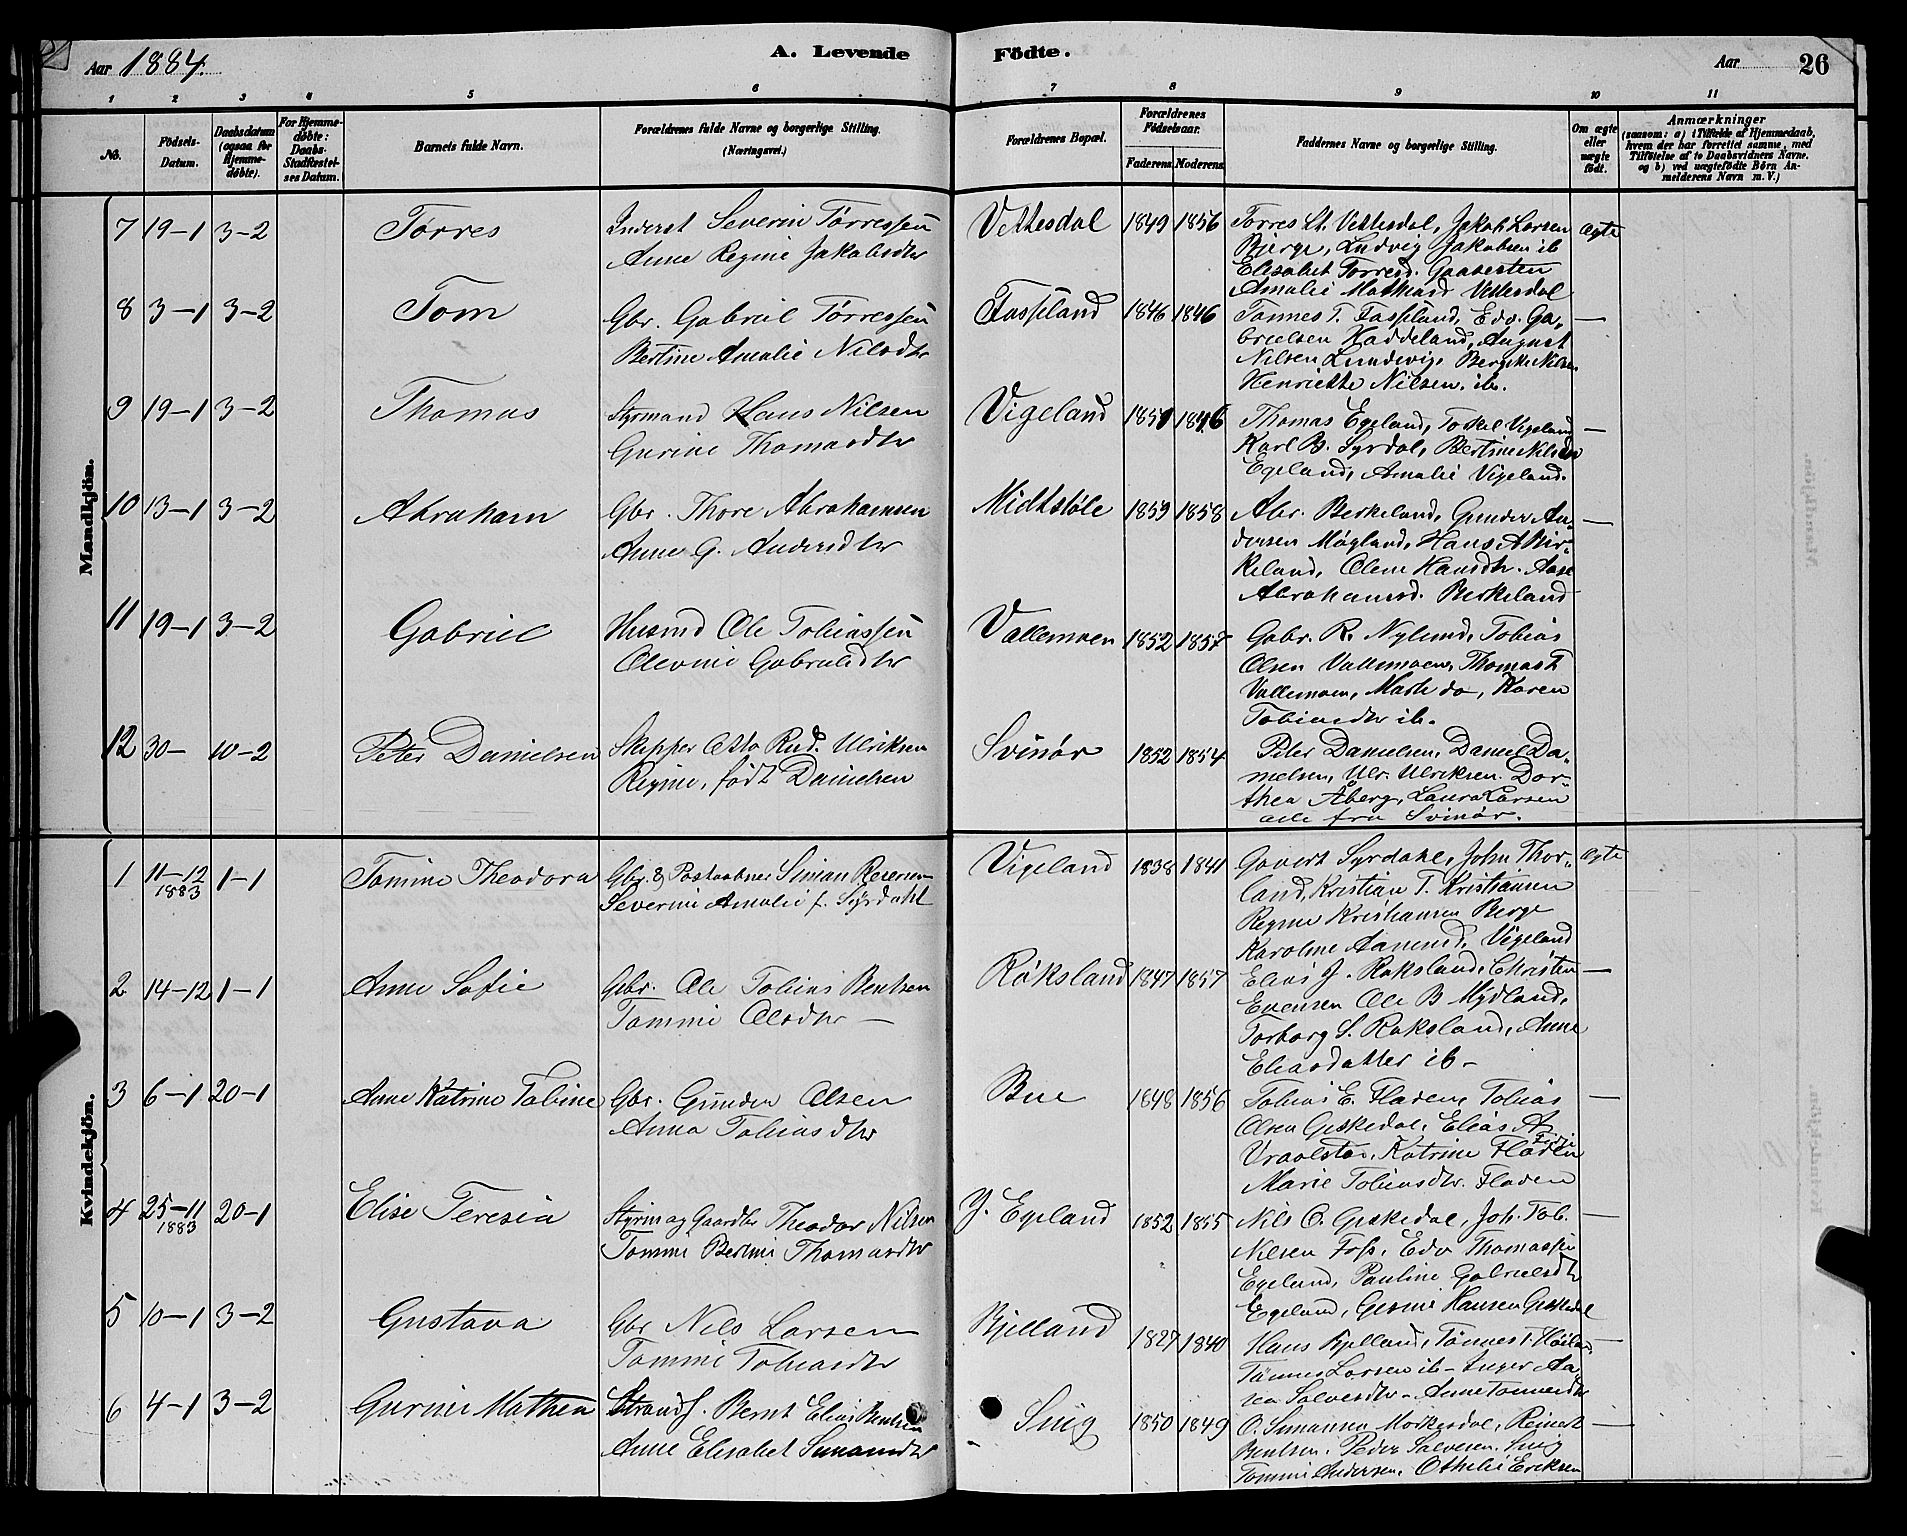 Aar 1884.
A. Levende Födte.
Aar
26
1 2 3 4 5 6 7 8 9 10 11
No.
Födsels-Datum.
Daabsdatum (ogsaa for Hjemme-döbte).
For Hjemme-döbte: Daabs-Stadfæstel-ses Datum.
Barnets fulde Navn.
Forældrenes fulde Navne og borgerlige Stilling.
(Næringsvei.)
Forældrenes Bopæl.
Forældrenes Födselsaar.
Faderens. Moderens.
Faddernes Navne og borgerlige Stilling.
Om ægte eller uægte födt.
Anmærkninger
(saasom: a) i Tilfælde af Hjemmedaab,
hvem der har forrettet samme, med
Tilföielse af to Daabsvidners Navne.
og b) ved uægtefödte Börn An-
melderens Navn m. V.)
Mandkjön.
7 19-1 3-2 Torres
Inderst Severin Tørressen
Anne Regine Jakobsdtr
Vettesdal 1849 1856
Torres St. Vettesdal, Jakob Larsen
Bjerge, Ludvig Jakobsen ib
Elisabet Torresd. Gaasesten
Amalie Mathiasd Vettesdal
ægte
8 3-1 3-2 Tom
Gbr. Gabriel Tørressen
Bertine Amalie Nilsdtr
Fasseland 1846 1846
Tønnes T. Fasseland, Edv. Ga-
brielsen Haddeland, August
Nilsen Lundevig, Bergitte Nilsen
Henriette Nilsen, ib.
—
9 19-1 3-2 Thomas
Styrmand Hans Nilsen
Gurine Thomasdtr
Vigeland 1851 1846
Thomas Egeland, Tokel Vigeland
Karl B. Syrdal, Bertine Nilsen
Egeland, Amalie Vigeland.
—
10 13-1 3-2 Abraham
Gbr. Thore Abrahamsen
Anne G. Andersdtr
Midtstøle 1859 1858
Abr. Berkeland, Gunder An-
dersen Møgland, Hans A Bir-
keland, Olene Hansdtr. Aase
Abrahamsd. Berkeland
—
11 19-1 3-2 Gabriel
Husmd Ole Tobiassen
Olevine Gabrielsdtr
Vallemoen 1852 1857
Gabr. R. Nylund, Tobias
Olsen Vallemoen, Thomas T
Vallemoen, Marte do, Karen
Tobiasdtr ib.
12 30- 10-2 Peter Danielsen
Skipper Otto Rud. Ulriksen
Regine, født Danielsen
Svinør 1852 1854
Peter Danielsen, Daniel Da-
nielsen, Ulr. Ulriksen. Dor-
thea Åberg, Laura Larsen
alle fra Svinør.
Kvindekjön.
1 11-12 1883 1-1 Tomine Theodora
Gbr. & Postaabner Simon Reiersen
Severine Amalie f. Syrdahl
Vigeland 1838 1841
Govert Syrdahl, John Thor-
land, Kristian T. Kristiansen
Regine Kristiansen Berge
Karoline Aanensd. Vigeland
ægte
2 14-12 1-1 Anne Sofie
Gbr. Ole Tobias Bentsen
Tomine Olsdtr —
Røksland 1847 1857
Elias J. Røksland, Christen
Evensen Ole B Mydland,
Torborg S. Røksland, Anne
Eliasdatter ib-
—
3 6-1 20-1 Anne Katrine Tobine
Gbr. Gunder Olsen
Anna Tobiasdtr
Bue 1848 1856
Tobias E. Fladen, Tobias
Olsen Geskedal, Elias A
Vraalstad, Katrine Fladen
Marie Tobiasdtr. Fladen
—
4 25-11 1883 20-1 Elise Teresia
Styrm og Gaardbr Theodor Nilsen
Tomine Bertine Thomasdtr
Y. Egeland 1852 1855
Nils O. Geskedal, Joh. Tob.
Nilsen Foss, Edv Thomassen
Egeland, Pauline Gabrielsdtr
Egeland, Gesine Hansen Geskedal
—
5 10-1 3-2 Gustava
Gbr Nils Larsen
Tomine Tobiasdtr
Bjelland 1827 1840
Hans Bjelland, Tønnes T. Høiland
Tønnes Larsen ib- Inger Aa-
sea Salvesdtr- Anne Tønnesdtr
—
6 4-1 3-2 Gurine Mathea
Strands. Bernt Elias Bentsen
Anne Elisabet Simonsdtr
Snig 1850 1849
O. Simonsen Moskesdal, Reinert
Bentsen, Peder Salvesen, Snig
Tomine Andersen, Othelie Eriksen
—